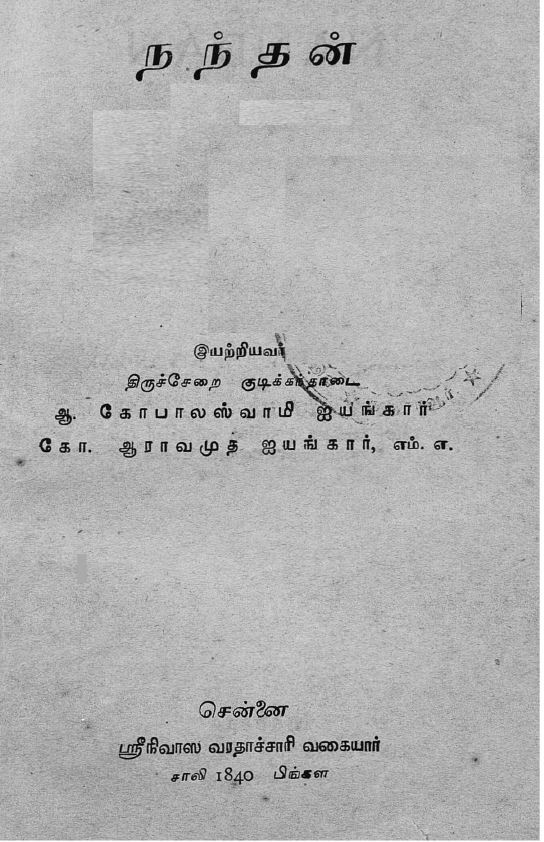 நந்தன்
இயற்றியவர்
திருச்சேறை குடிக்கந்தாடை
ஆ. கோபாலஸ்வாமி ஐயங்கார்
கோ. ஆராவமுத ஐயங்கார், எம். ஏ.
சென்னை
ஸ்ரீநிவாஸ வரதாச்சாரி வகையார்
சாலி 1840 பிங்கள